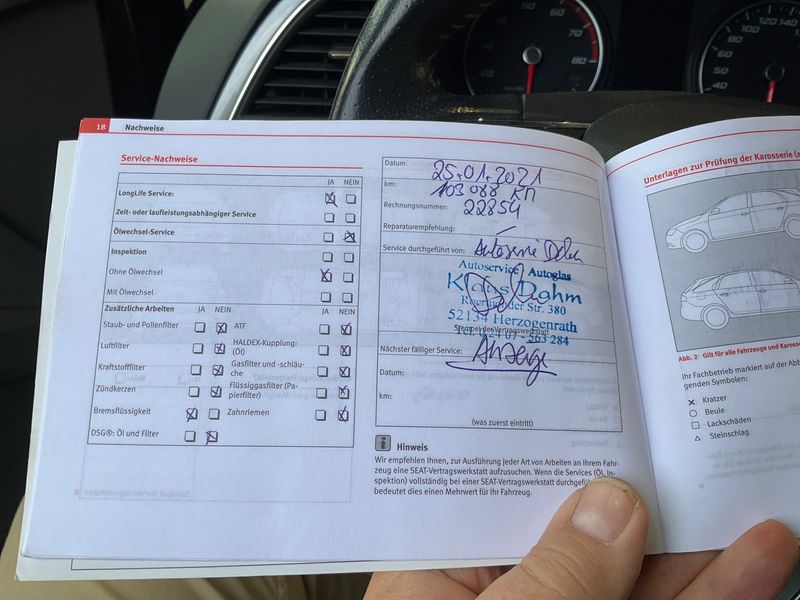 18 Nachweise
Service-Nachweise
JA NEIN
LongLife Service:
Zeit- oder laufleistungsabhängiger Service
Ölwechsel-Service
Inspektion
Ohne Ölwechsel
Mit Ölwechsel
Zusätzliche Arbeiten JA NEIN JA NEIN
Staub- und Pollenfilter ATF
Luftfilter HALDEX-Kupplung: (Öl)
Kraftstofffilter Gasfilter und -schläuche
Zündkerzen Flüssiggasfilter (Papierfilter)
Bremsflüssigkeit Zahnriemen
DSG®: Öl und Filter
Datum 25.01.2021
km: 103 088 km
Rechnungsnummer: 22854
Reparaturempfehlung: –
Service durchgeführt von: Autoservice Dahm
Autoservice Autoglas
Klaus Dahm
Str. 380
52134 Herzogenrath
Stempel der Vertragswerkstatt
263 284
Nächster fälliger Service: Anzeige
Datum:
km:
(was zuerst eintritt)
Hinweis
Wir empfehlen Ihnen, zur Ausführung jeder Art von Arbeiten an Ihrem Fahr-
zeug eine SEAT-Vertragswerkstatt aufzusuchen. Wenn die Services (Öl, In-
spektion) vollständig bei einer SEAT-Vertragswerkstatt
bedeutet dies einen Mehrwert für Ihr Fahrzeug.
Unterlagen zur Prüfung der Karosserie
Abb. 2 Gilt für alle Fahrzeuge und
Ihr Fachbetrieb markiert auf der
genden Symbolen:
Kratzer
Beule
Lackschäden
Steinschlag